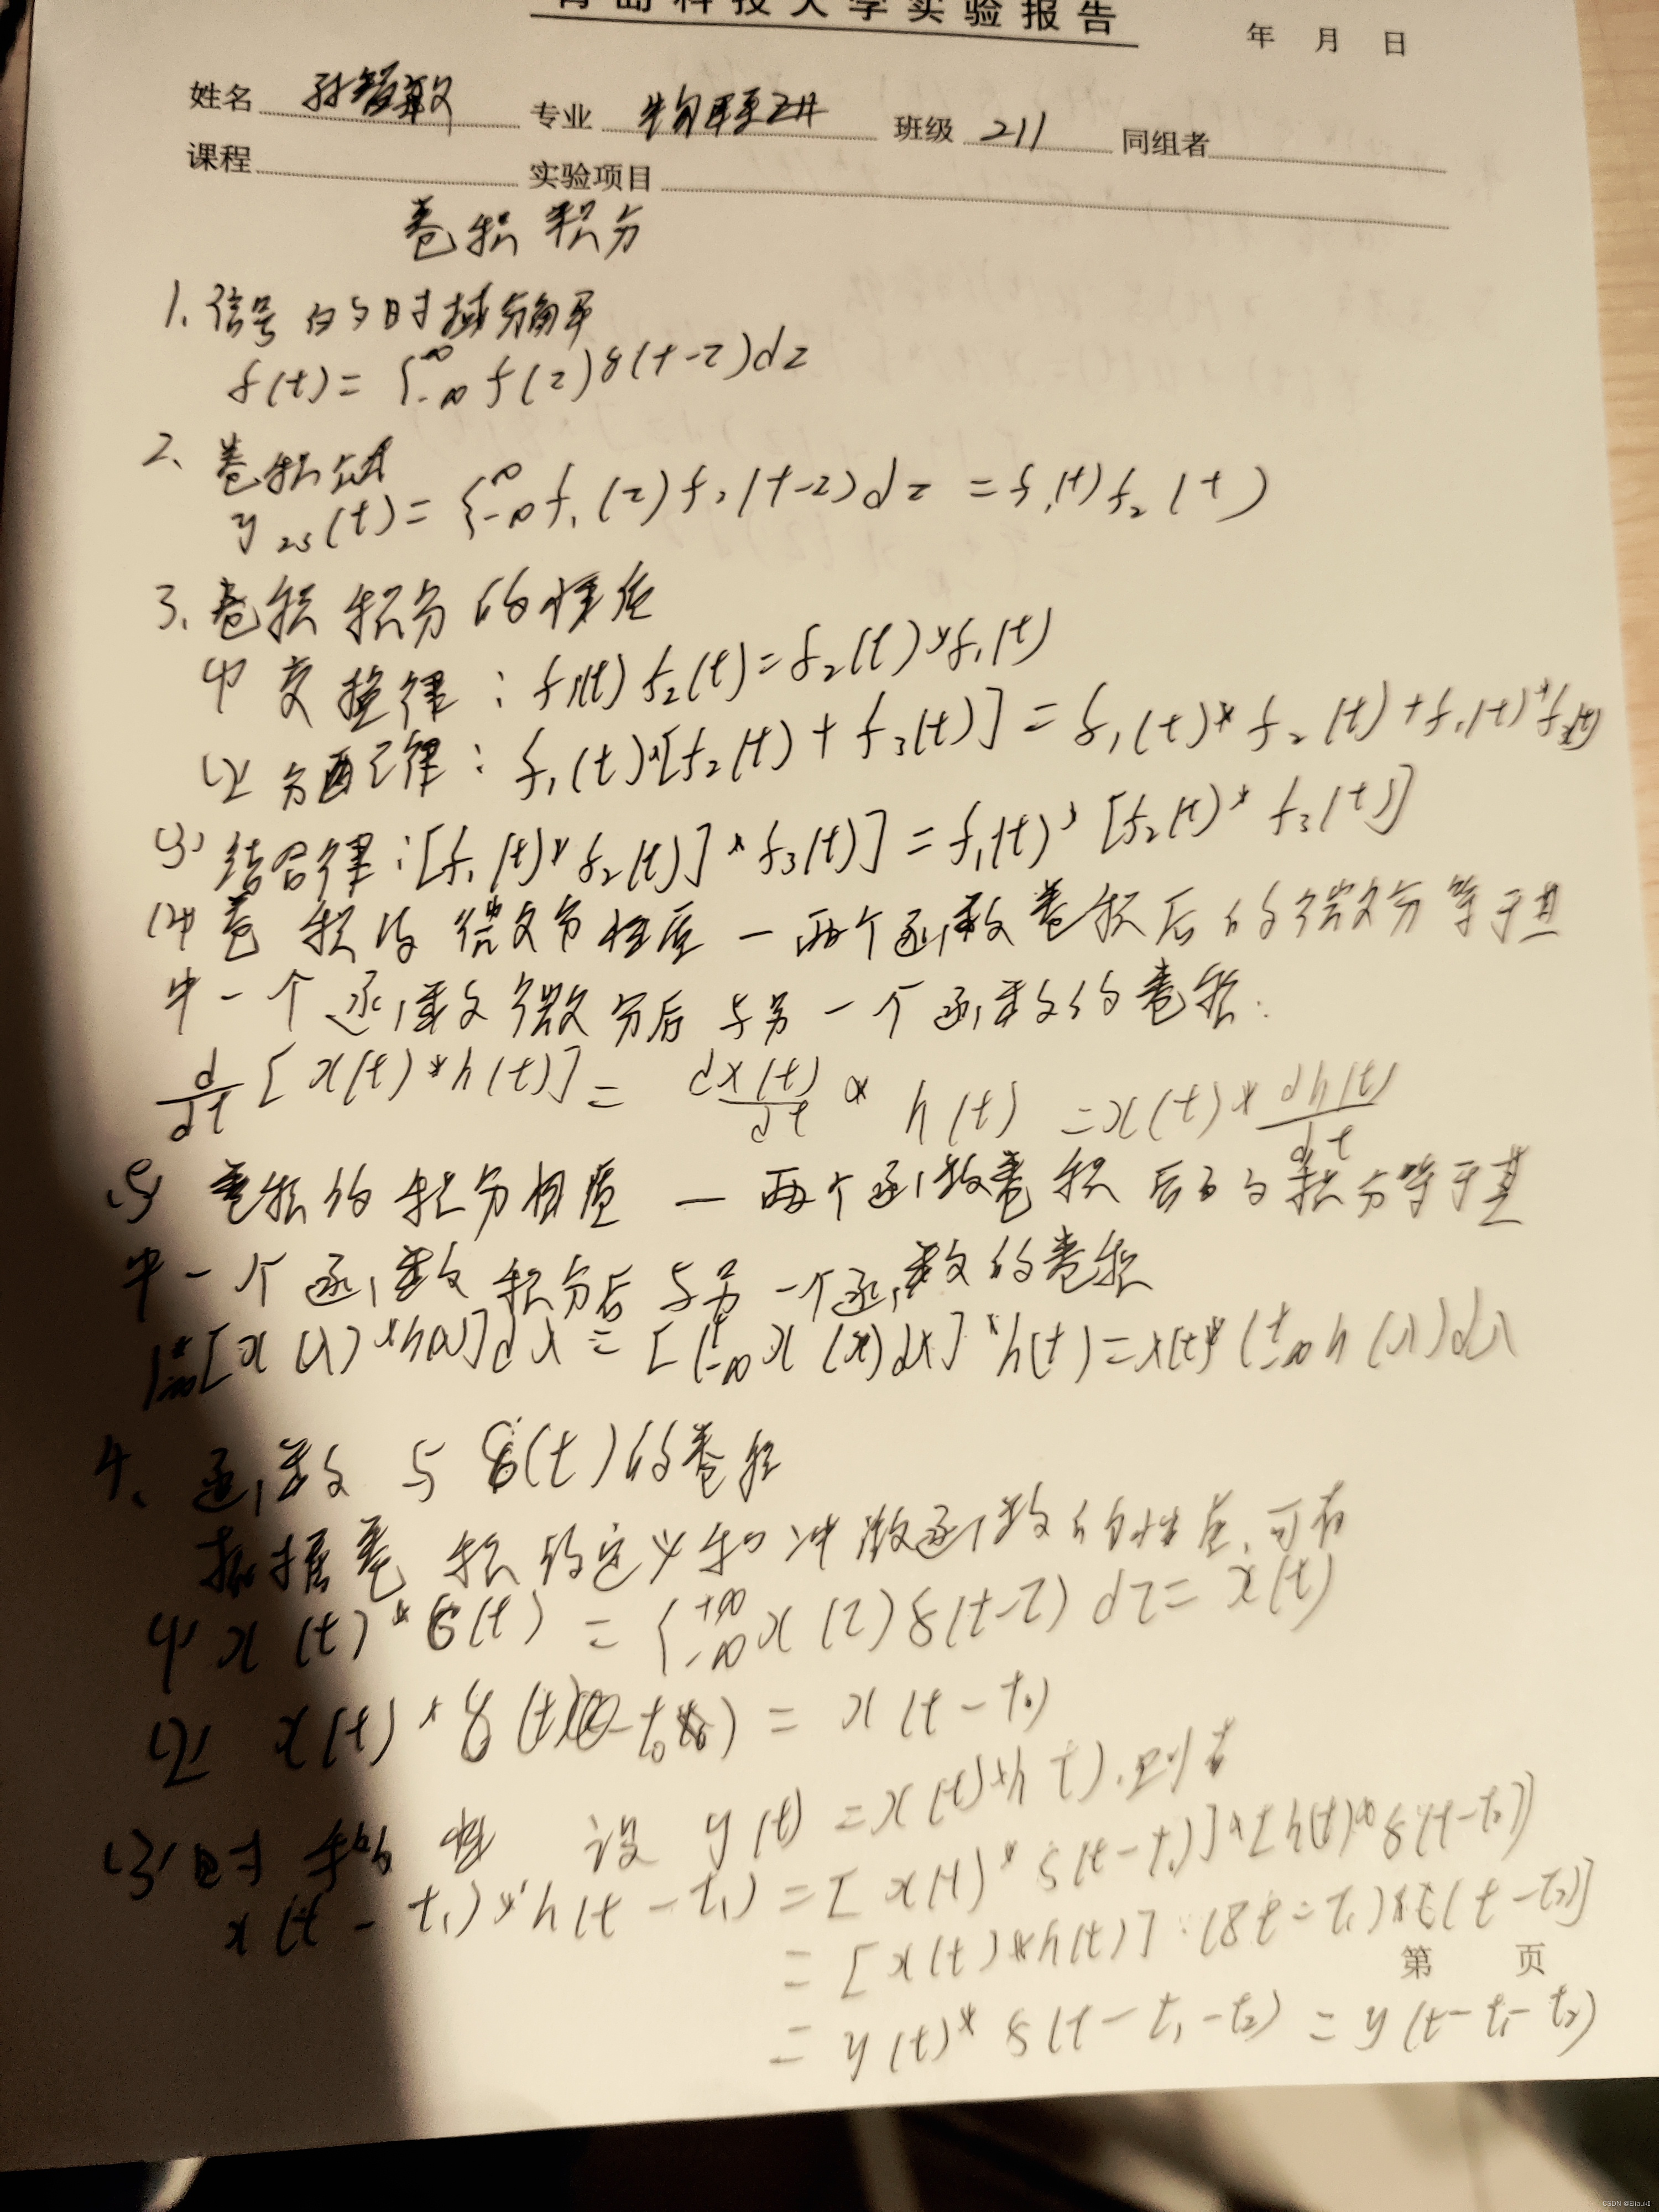 青岛科技大学实验报告
年 月 日
姓名 孙智敏 专业 物联网 班级 211 同组者
课程 实验项目
卷积积分
1. 信号的时域分解
f(t) = ∫_{-∞}^{∞} f(τ)δ(t-τ)dτ
2、卷积公式
y_{zs}(t) = ∫_{-∞}^{∞} f₁(τ)f₂(t-τ)dτ = f₁(t)f₂(t)
3. 卷积积分的性质
(1) 交换律：f₁(t) f₂(t) = f₂(t)*f₁(t)
(2) 分配律：f₁(t)*[f₂(t) + f₃(t)] = f₁(t)* f₂(t) + f₁(t)*f₃(t)
(3) 结合律：[f₁(t)*f₂(t)]*f₃(t)] = f₁(t)*[f₂(t)* f₃(t)]
(4) 卷积的微分性质一两个函数卷积后的微分等于其
中一个函数微分后与另一个函数的卷积.
d/dt [x(t)*h(t)] = dx(t)/dt * h(t) = x(t)* dh(t)/dt
(5) 卷积的积分性质一两个函数卷积后的积分等于其
中一个函数积分后与另一个函数的卷积
∫_{-∞}^{t}[x(λ)*h(λ)]dλ = [∫_{-∞}^{t} x(λ)dλ]*h(t) = x(t)*∫_{-∞}^{t} h(λ)dλ
4、函数与δ(t)的卷积
根据卷积的定义和冲激函数的性质,可有
(1) x(t)*δ(t) = ∫_{-∞}^{+∞} x(τ)δ(t-τ)dτ = x(t)
(2) x(t)*δ(t-t₀) = x(t-t₀)
(3) 时移性 设 y(t) = x(t)*h t).则有
x(t-t₁)*h(t-t₁) = [x(t)*δ(t-t₁)]*[h(t)*δ(t-t₂)]
= [x(t)*h(t)]·(δt-t₁)*δ(t-t₂)]
第 页
= y(t)*δ(t-t₁-t₂) = y(t-t₁-t₂)
CSDN @Eliauk‖